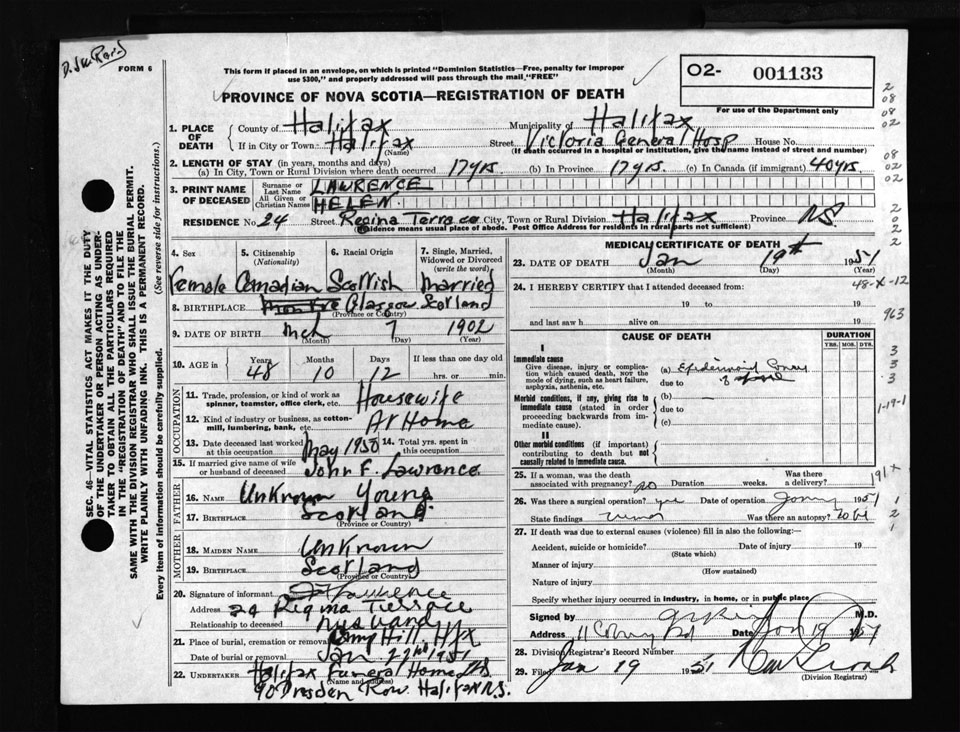 FORM 6
This form if placed in an envelope, on which is printed "Dominion Statistics—Free, penalty for improper
use $300," and properly addressed will pass through the mail "FREE"
02- 001133
For use of the Department only
PROVINCE OF NOVA SCOTIA—REGISTRATION OF DEATH
1. PLACE OF DEATH
County of Halifax Municipality of Halifax
If in City or Town: Halifax (Name) Street Victoria General Hosp House No.
(If death occurred in a hospital or institution, give the name instead of street and number)
2. LENGTH OF STAY (in years, months and days)
(a) In City, Town or Rural Division where death occurred 17 yrs. (b) In Province 17 yrs. (c) In Canada (if immigrant) 40 yrs.
3. PRINT NAME OF DECEASED
Surname or Last Name LAWRENCE
All Given or Christian Names HELEN
RESIDENCE No 24 Street Regina Terrace City, Town or Rural Division Halifax Province NS
(Residence means usual place of abode. Post Office Address for residents in rural parts not sufficient)
4. Sex 5. Citizenship (Nationality) 6. Racial Origin 7. Single, Married, Widowed or Divorced (write the word)
Female Canadian Scottish Married
8. BIRTHPLACE Glasgow Scotland
(Province or Country)
9. DATE OF BIRTH Mch 7 1902
(Month) (Day) (Year)
10. AGE in Years 48 Months 10 Days 12 If less than one day old hrs. or min.
OCCUPATION
11. Trade, profession, or kind of work as spinner, teamster, office clerk, etc. Housewife
12. Kind of industry or business, as cotton-mill, lumbering, bank, etc. At Home
13. Date deceased last worked at this occupation May 1950 14. Total yrs. spent in this occupation
15. If married give name of wife or husband of deceased John F. Lawrence
FATHER
16. NAME Unknown Young
17. BIRTHPLACE Scotland
(Province or Country)
MOTHER
18. MAIDEN NAME Unknown
19. BIRTHPLACE Scotland
(Province or Country)
20. Signature of informant Lawrence
Address 24 Regina Terrace
Relationship to deceased husband
21. Place of burial, cremation or removal Camp Hill. Hfx
Date of burial or removal Jan 22nd 1951
22. UNDERTAKER Halifax Funeral Home
(Name and address)
90 Dresden Row. Halifax N.S.
MEDICAL CERTIFICATE OF DEATH
23. DATE OF DEATH Jan 19th 1951
(Month) (Day) (Year)
24. I HEREBY CERTIFY that I attended deceased from:
19 to 19
and last saw h alive on 19
48-X-12
963
CAUSE OF DEATH
DURATION
YRS. MOS. DYS.
I
Immediate cause
Give disease, injury or complication which caused death, not the mode of dying, such as heart failure, asphyxia, asthenia, etc.
(a) Epidermoid
due to
Morbid conditions, if any, giving rise to immediate cause (stated in order proceeding backwards from immediate cause).
(b)
due to
(c)
1-19-1
II
Other morbid conditions (if important) contributing to death but not causally related to immediate cause.
25. If a woman, was the death associated with pregnancy? no Duration weeks. Was there a delivery?
26. Was there a surgical operation? yes Date of operation 1951
State findings Was there an autopsy?
27. If death was due to external causes (violence) fill in also the following:—
Accident, suicide or homicide? Date of injury 19
(State which)
Manner of injury
(How sustained)
Nature of injury
Specify whether injury occurred in industry, in home, or in public place
Signed by M.D.
Address Date Jan 19 1951
28. Division Registrar's Record Number
29. Filed Jan 19 1951
(Division Registrar)
2
08
08
02
08
02
02
2
3
3
3
SEC. 46—VITAL STATISTICS ACT MAKES IT THE DUTY
OF THE UNDERTAKER OR PERSON ACTING AS UNDERTAKER TO OBTAIN ALL THE PARTICULARS REQUIRED
IN THE "REGISTRATION OF DEATH" AND TO FILE THE
SAME WITH THE DIVISION REGISTRAR WHO SHALL ISSUE THE BURIAL PERMIT.
WRITE PLAINLY WITH UNFADING INK. THIS IS A PERMANENT RECORD.
Every item of information should be carefully supplied. (See reverse side for instructions.)